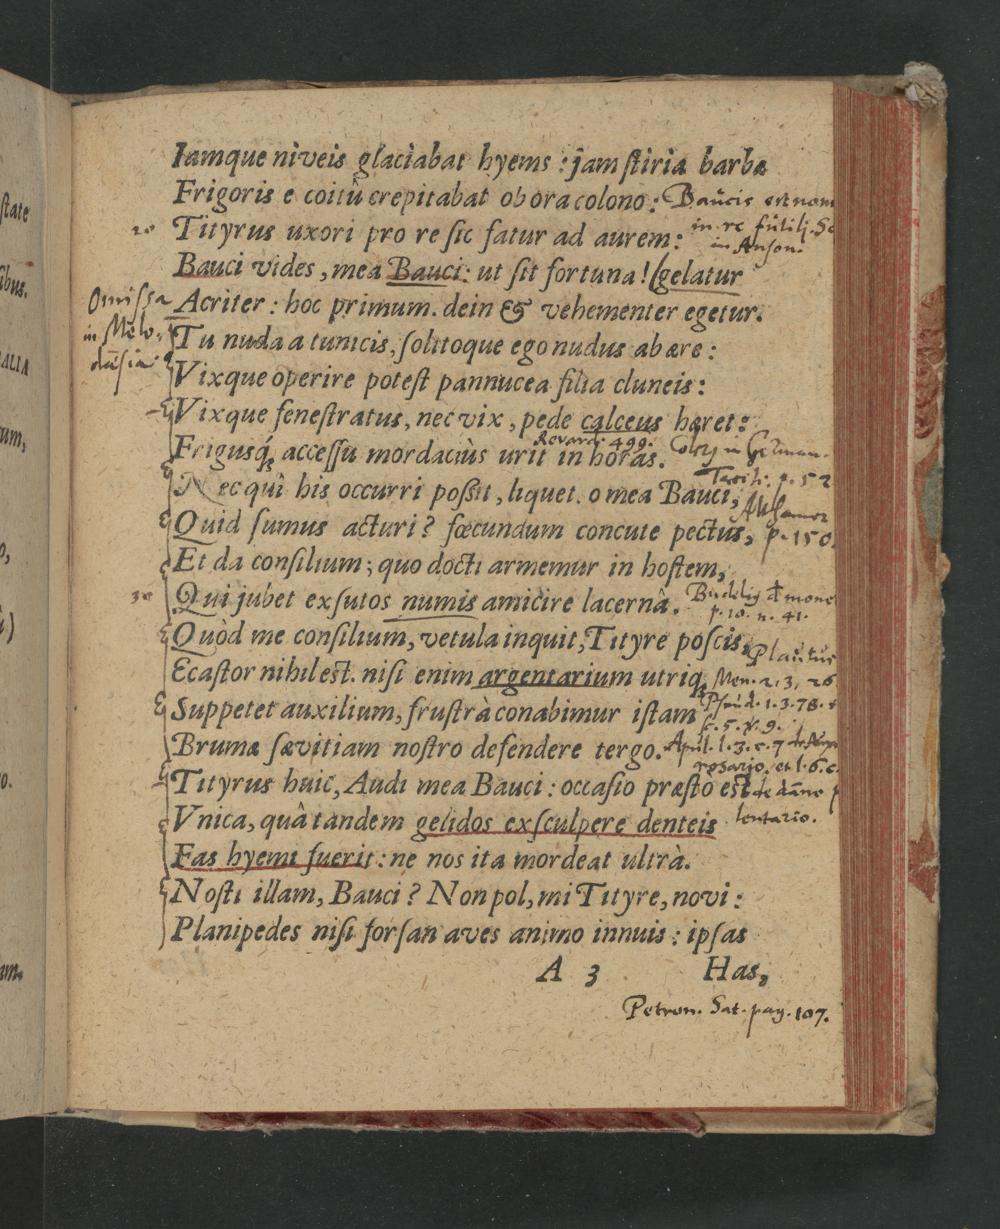 Iamque niveis glaciabat hyems : jam stiria barbæ
Frigoris e coitû crepitabat ob ora colono :
Baucis est nom
in re futili. Sc
20
Tityrus uxori pro re sic fatur ad aurem :
Bauci vides, mea Bauci : ut sit fortuna ! gelatur
Omissa
Acriter : hoc primum. dein & vehementer egetur.
in Melo-
Tu nuda a tunicis, solitoque ego nudus ab ære :
Vixque operire potest pannucea filia cluneis :
Vixque fenestratus, nec vix, pede calceus hæret :
Revard. 499.
Frigusq́; accessu mordaciùs urit in horas.
Tacit: p. 52
Nec quî his occurri possit, liquet. o mea Bauci,
Quid sumus acturi ? fœcundum concute pectus,
p. 150.
Et da consilium ; quo docti armemur in hostem,
30
Qui jubet exsutos numis amicire lacernâ.
p. 10. n. 41.
Quòd me consilium, vetula inquit, Tityre poscis,
Plautus
Ecastor nihil est. nisi enim argentarium utriq;
Men. 2, 3, 26
Suppetet auxilium, frustrà conabimur istam
Pseud. 1. 3. 78.
Brumæ sævitiam nostro defendere tergo.
Apul. l. 3. c. 7
et l. 6. c.
Tityrus huic, Audi mea Bauci : occasio præsto est
Vnica, quâ tandem gelidos exsculpere denteis
lentario.
Fas hyemi fuerit : ne nos ita mordeat ultrà.
Nosti illam, Bauci ? Non pol, mi Tityre, novi :
Planipedes nisi forsan aves animo innuis : ipsas
A 3
Has,
Petron. Sat. pag. 107.